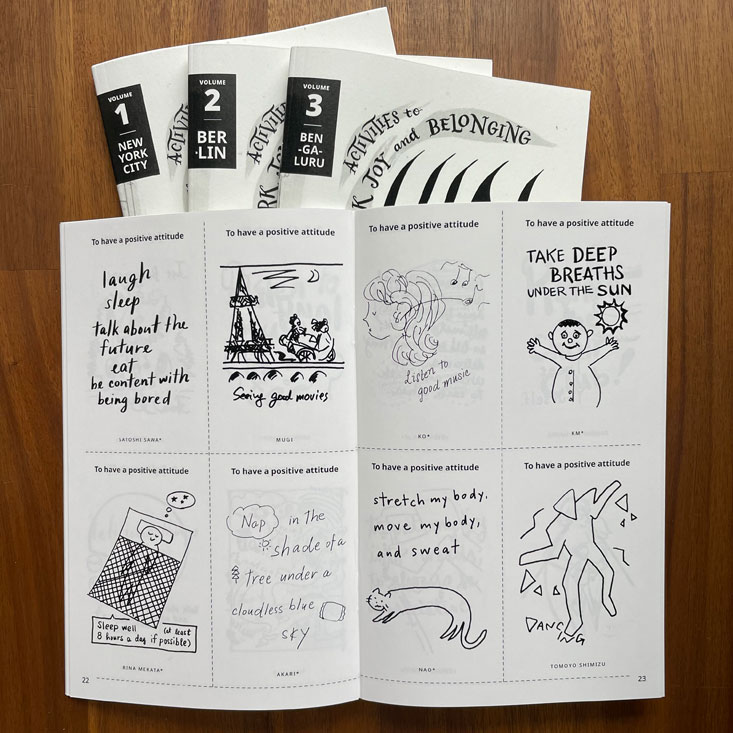 VOLUME
1
NEW
YORK
CITY
ACTIVITIES
VOLUME
2
BER
·LIN
ACTIVITIES
RK
VOLUME
3
BEN
-GA-
LURU
ACTIVITIES to
K JOY and BELONGING
To have a positive attitude
laugh
sleep
talk about the
future
eat
be content with
being bored
SATOSHI SAWA*
To have a positive attitude
Seeing good movies
MUGI
To have a positive attitude
Listen to
good music
KO*
To have a positive attitude
TAKE DEEP
BREATHS
UNDER THE SUN
KM*
To have a positive attitude
Sleep well (at least
8 hours a day if possible)
RINA MERATA*
22
To have a positive attitude
Nap in the
shade of a
tree under a
cloudless blue
sky
AKARI*
To have a positive attitude
stretch my body,
move my body,
and sweat
NAO*
To have a positive attitude
DANCING
TOMOYO SHIMIZU
23